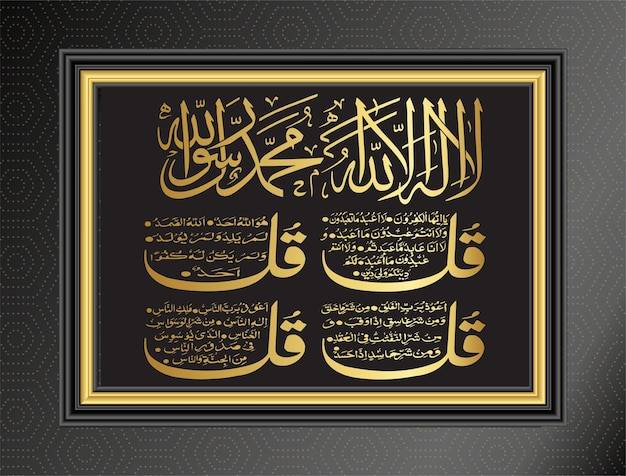 لا إله إلا الله محمد رسول الله
قل
يا أيها الكفرون • لا أعبد ما تعبدون
• ولا أنتم عبدون ما أعبد •
ولا أنا عابد ما عبدتم • ولا أنتم
عبدون ما أعبد • لكم
دينكم ولي دين •
قل
هو الله أحد • الله الصمد •
لم يلد ولم يولد •
ولم يكن له كفوا
أحد •
قل
أعوذ برب الفلق • من شر ما خلق
• ومن شر غاسق إذا وقب •
ومن شر النفثت في العقد •
ومن شر حاسد إذا حسد •
قل
أعوذ برب الناس • ملك الناس •
إله الناس • من شر الوسواس
الخناس • الذي يوسوس
في صدور الناس •
من الجنة والناس •